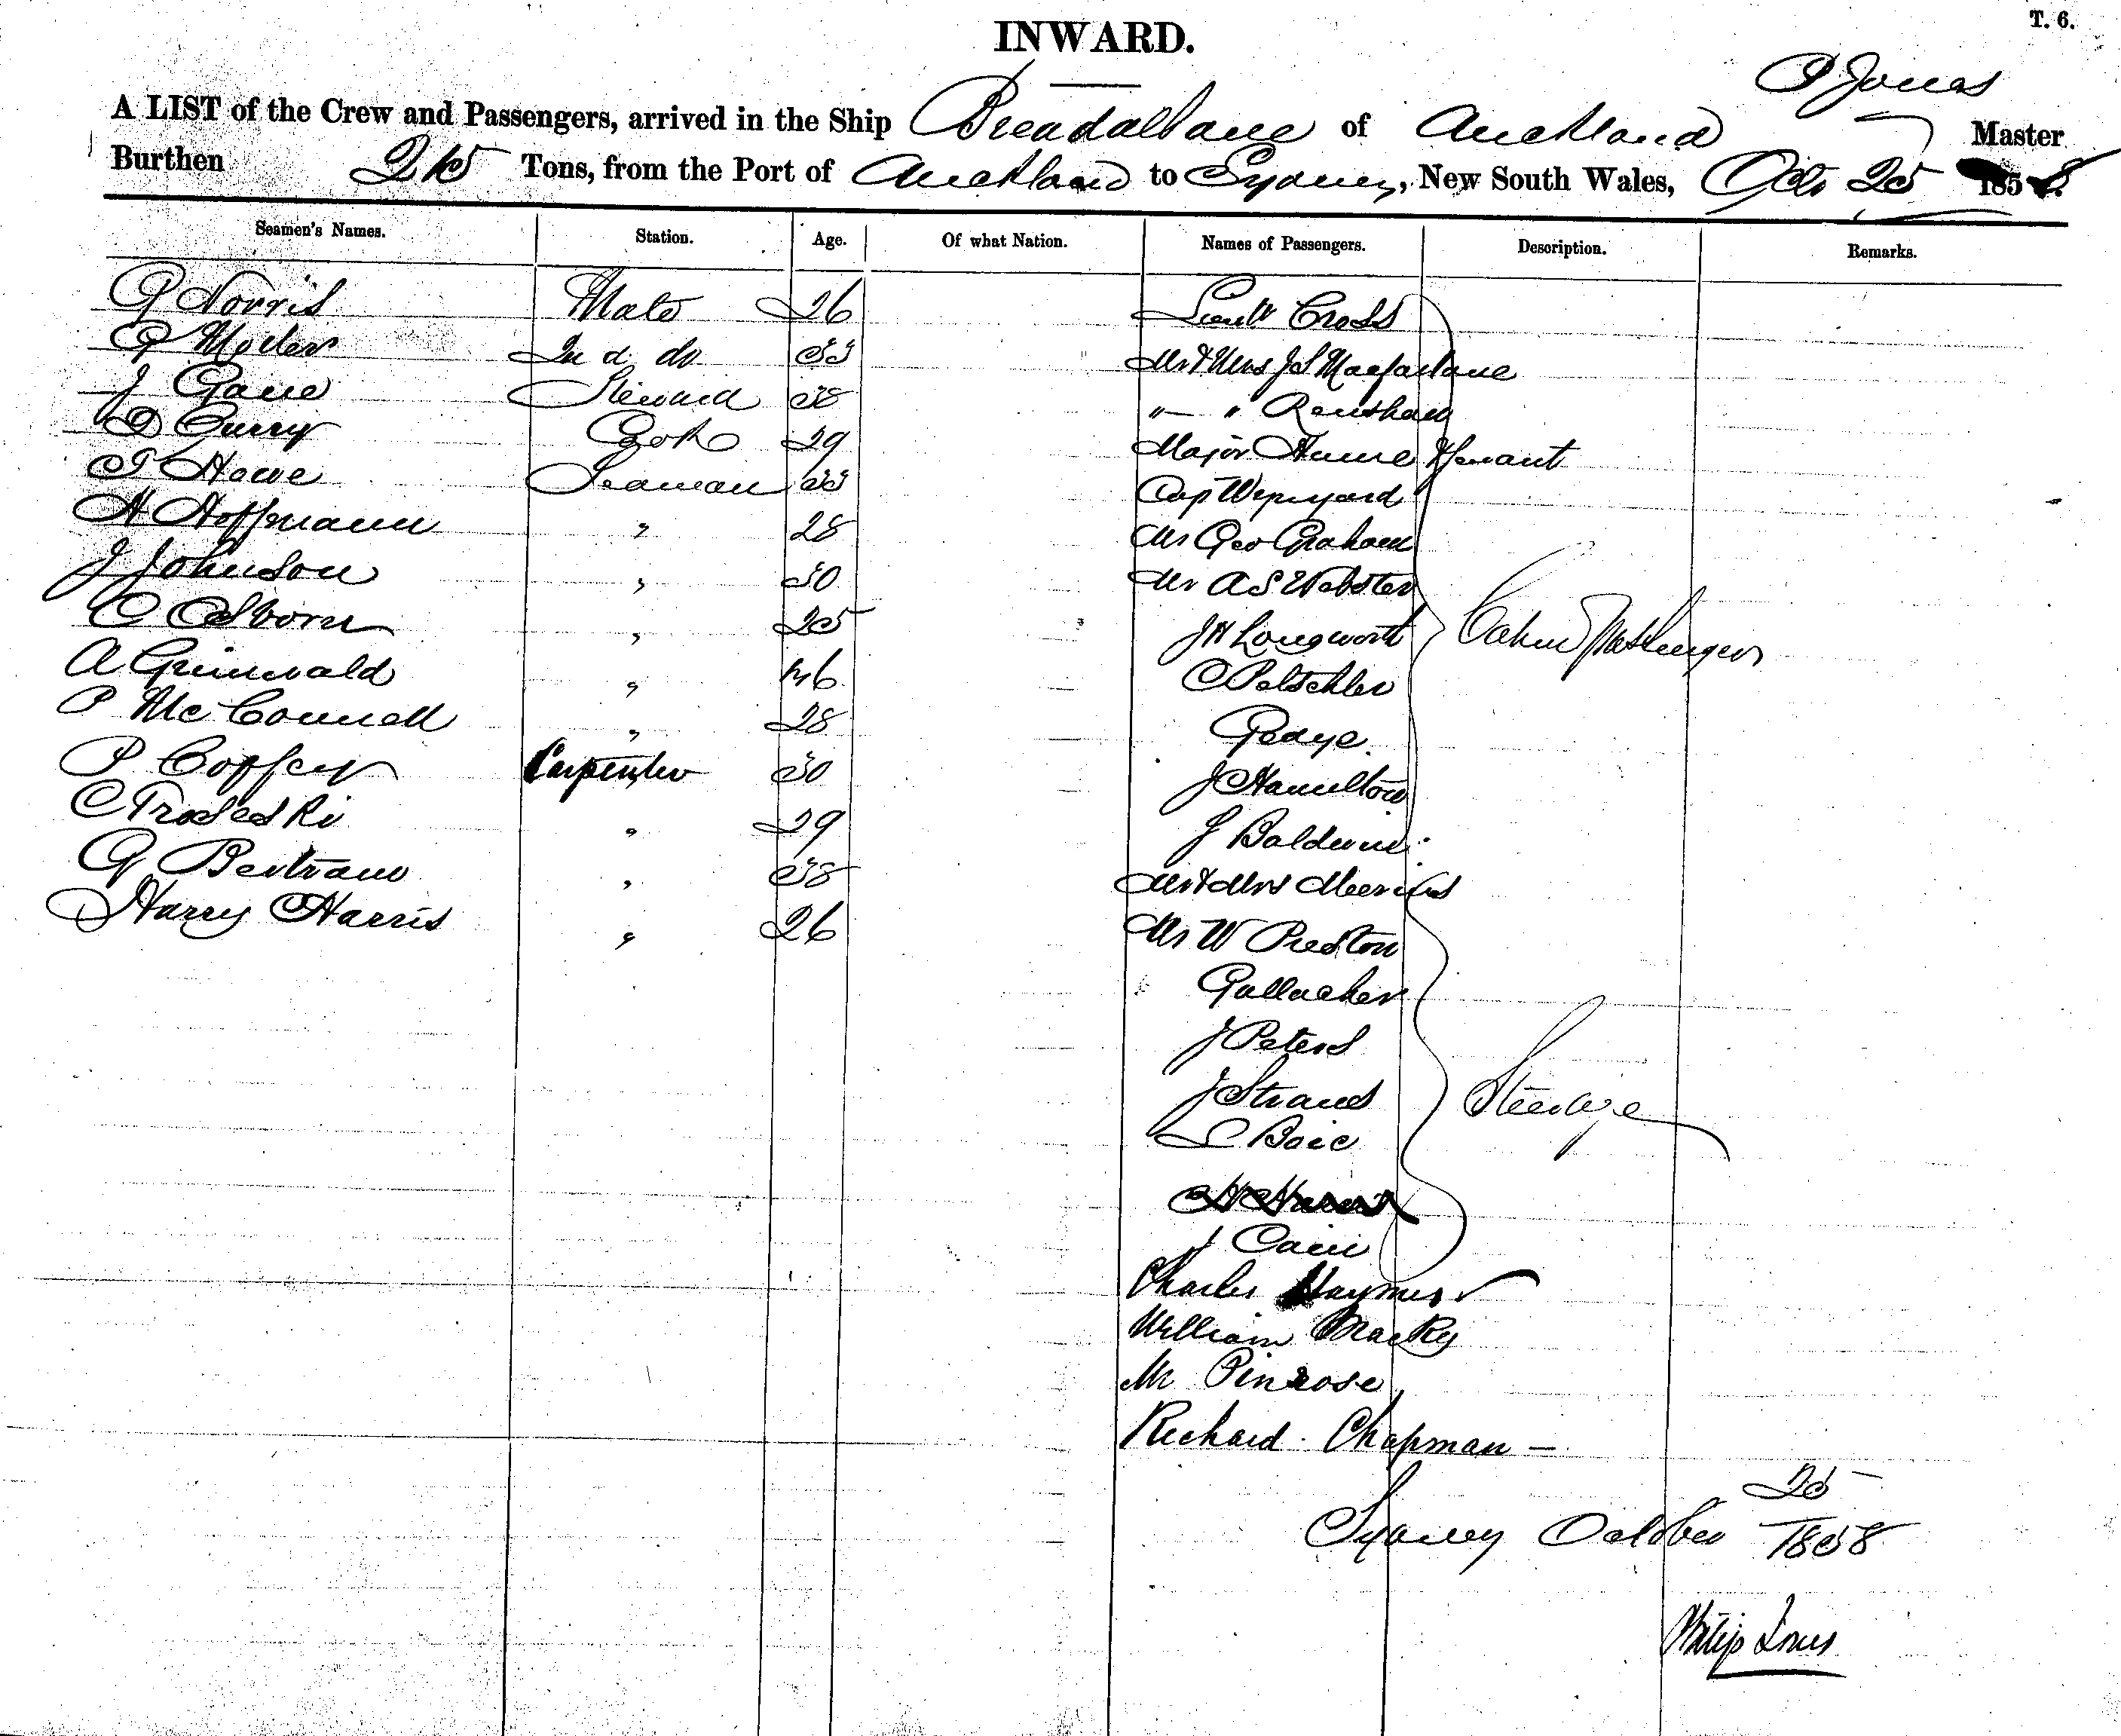 T. 6.
INWARD.
P Jones
A LIST of the Crew and Passengers, arrived in the Ship Breadalbane of Auckland Master
Burthen 215 Tons, from the Port of Auckland to Sydney, New South Wales, Oct 25 1858.
Seamen's Names. Station. Age. Of what Nation. Names of Passengers. Description. Remarks.
G Norris Mate 26 Lieut Cross
2nd do 33 Mr & Mrs J S Macfarlane
J Gane Steward 38 " " Renshaw
D Curry Cook 29 Major Hume & Servant
T Howe Seaman 33 Cap Wynyard
H Hoffmann " 28 Mr Geo Graham
J Johnson " 30 Mr A S Webster
C Osborn " 25 J H Longworth Cabin Passengers
A Grunwald " 46 C Petschler
P McConnell " 28 Gedye.
P Coffey Carpenter 30 J Hamilton
C Troseski " 29 J Baldwin
G Bertram " 38 Mr & Mrs
Harry Harris " 26 Mr W Preston
Gallacher
J Peters
J Strand Steerage
S Boie
J Cain
Charles Haymes
William Macky
Mr Pinrose
Richard Chapman
25
Sydney October 1858
Philip Jones